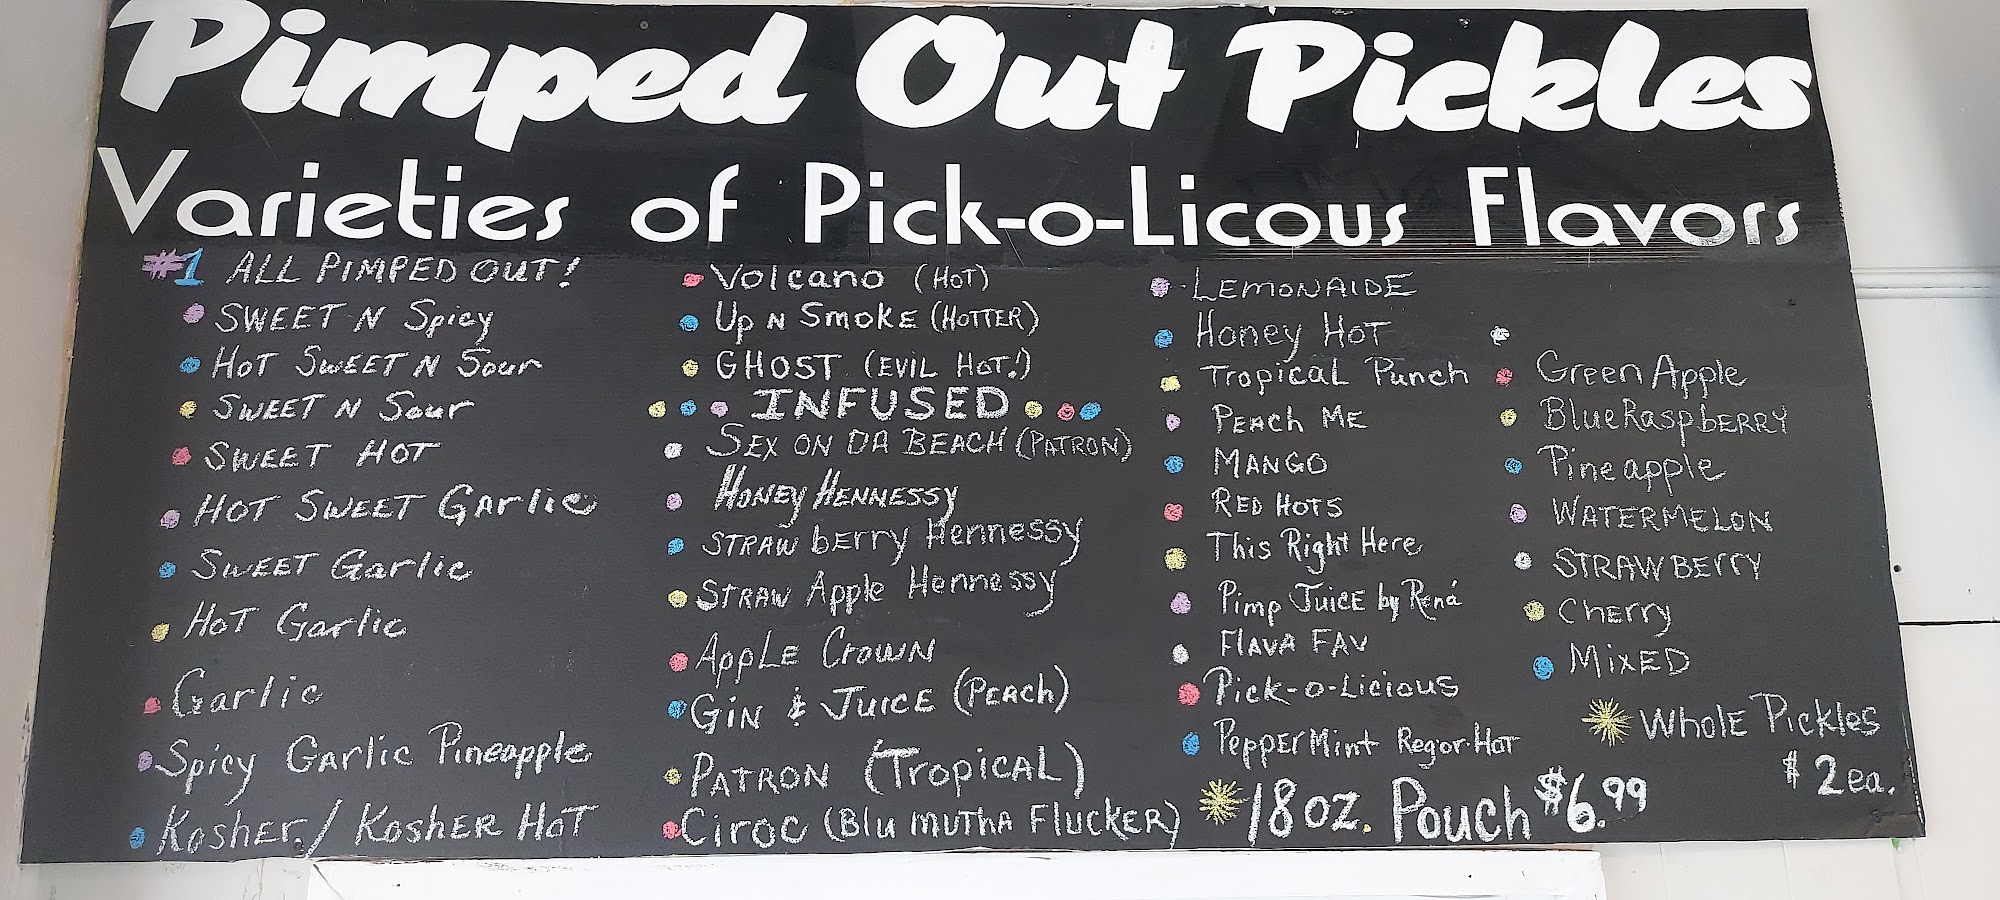 Pimped Out Pickles
Varieties of Pick-o-Licous Flavors
#1 ALL PIMPED OUT!
SWEET N Spicy
HOT SWEET N Sour
SWEET N Sour
SWEET HOT
HOT SWEET Garlic
SWEET Garlic
HOT Garlic
Garlic
Spicy Garlic Pineapple
Kosher / KOSHER HOT
Volcano (HOT)
Up N Smoke (HOTTER)
GHOST (EVIL HOT!)
INFUSED
SEX ON DA BEACH (PATRON)
HONEY HENNESSY
STRAWbERRY Hennessy
STRAW Apple Hennessy
AppLE CrOWN
GIN & JUICE (PEACH)
PATRON (TropICAL)
CIroc (Blu MUTHA FLUCKER)
LEMONAIDE
Honey HOT
Tropical Punch
PEACh ME
MANGO
RED HOTS
This Right Here
Pimp JUICE by Rená
FLAVA FAV
Pick-o-Licious
PEPPERMint Regor HOT
*18oz. Pouch $6.99
Green Apple
BlueRaspbERRY
Pineapple
WATERMELON
STRAWBERRY
Cherry
MIXED
*WHOLE Pickles
$2ea.